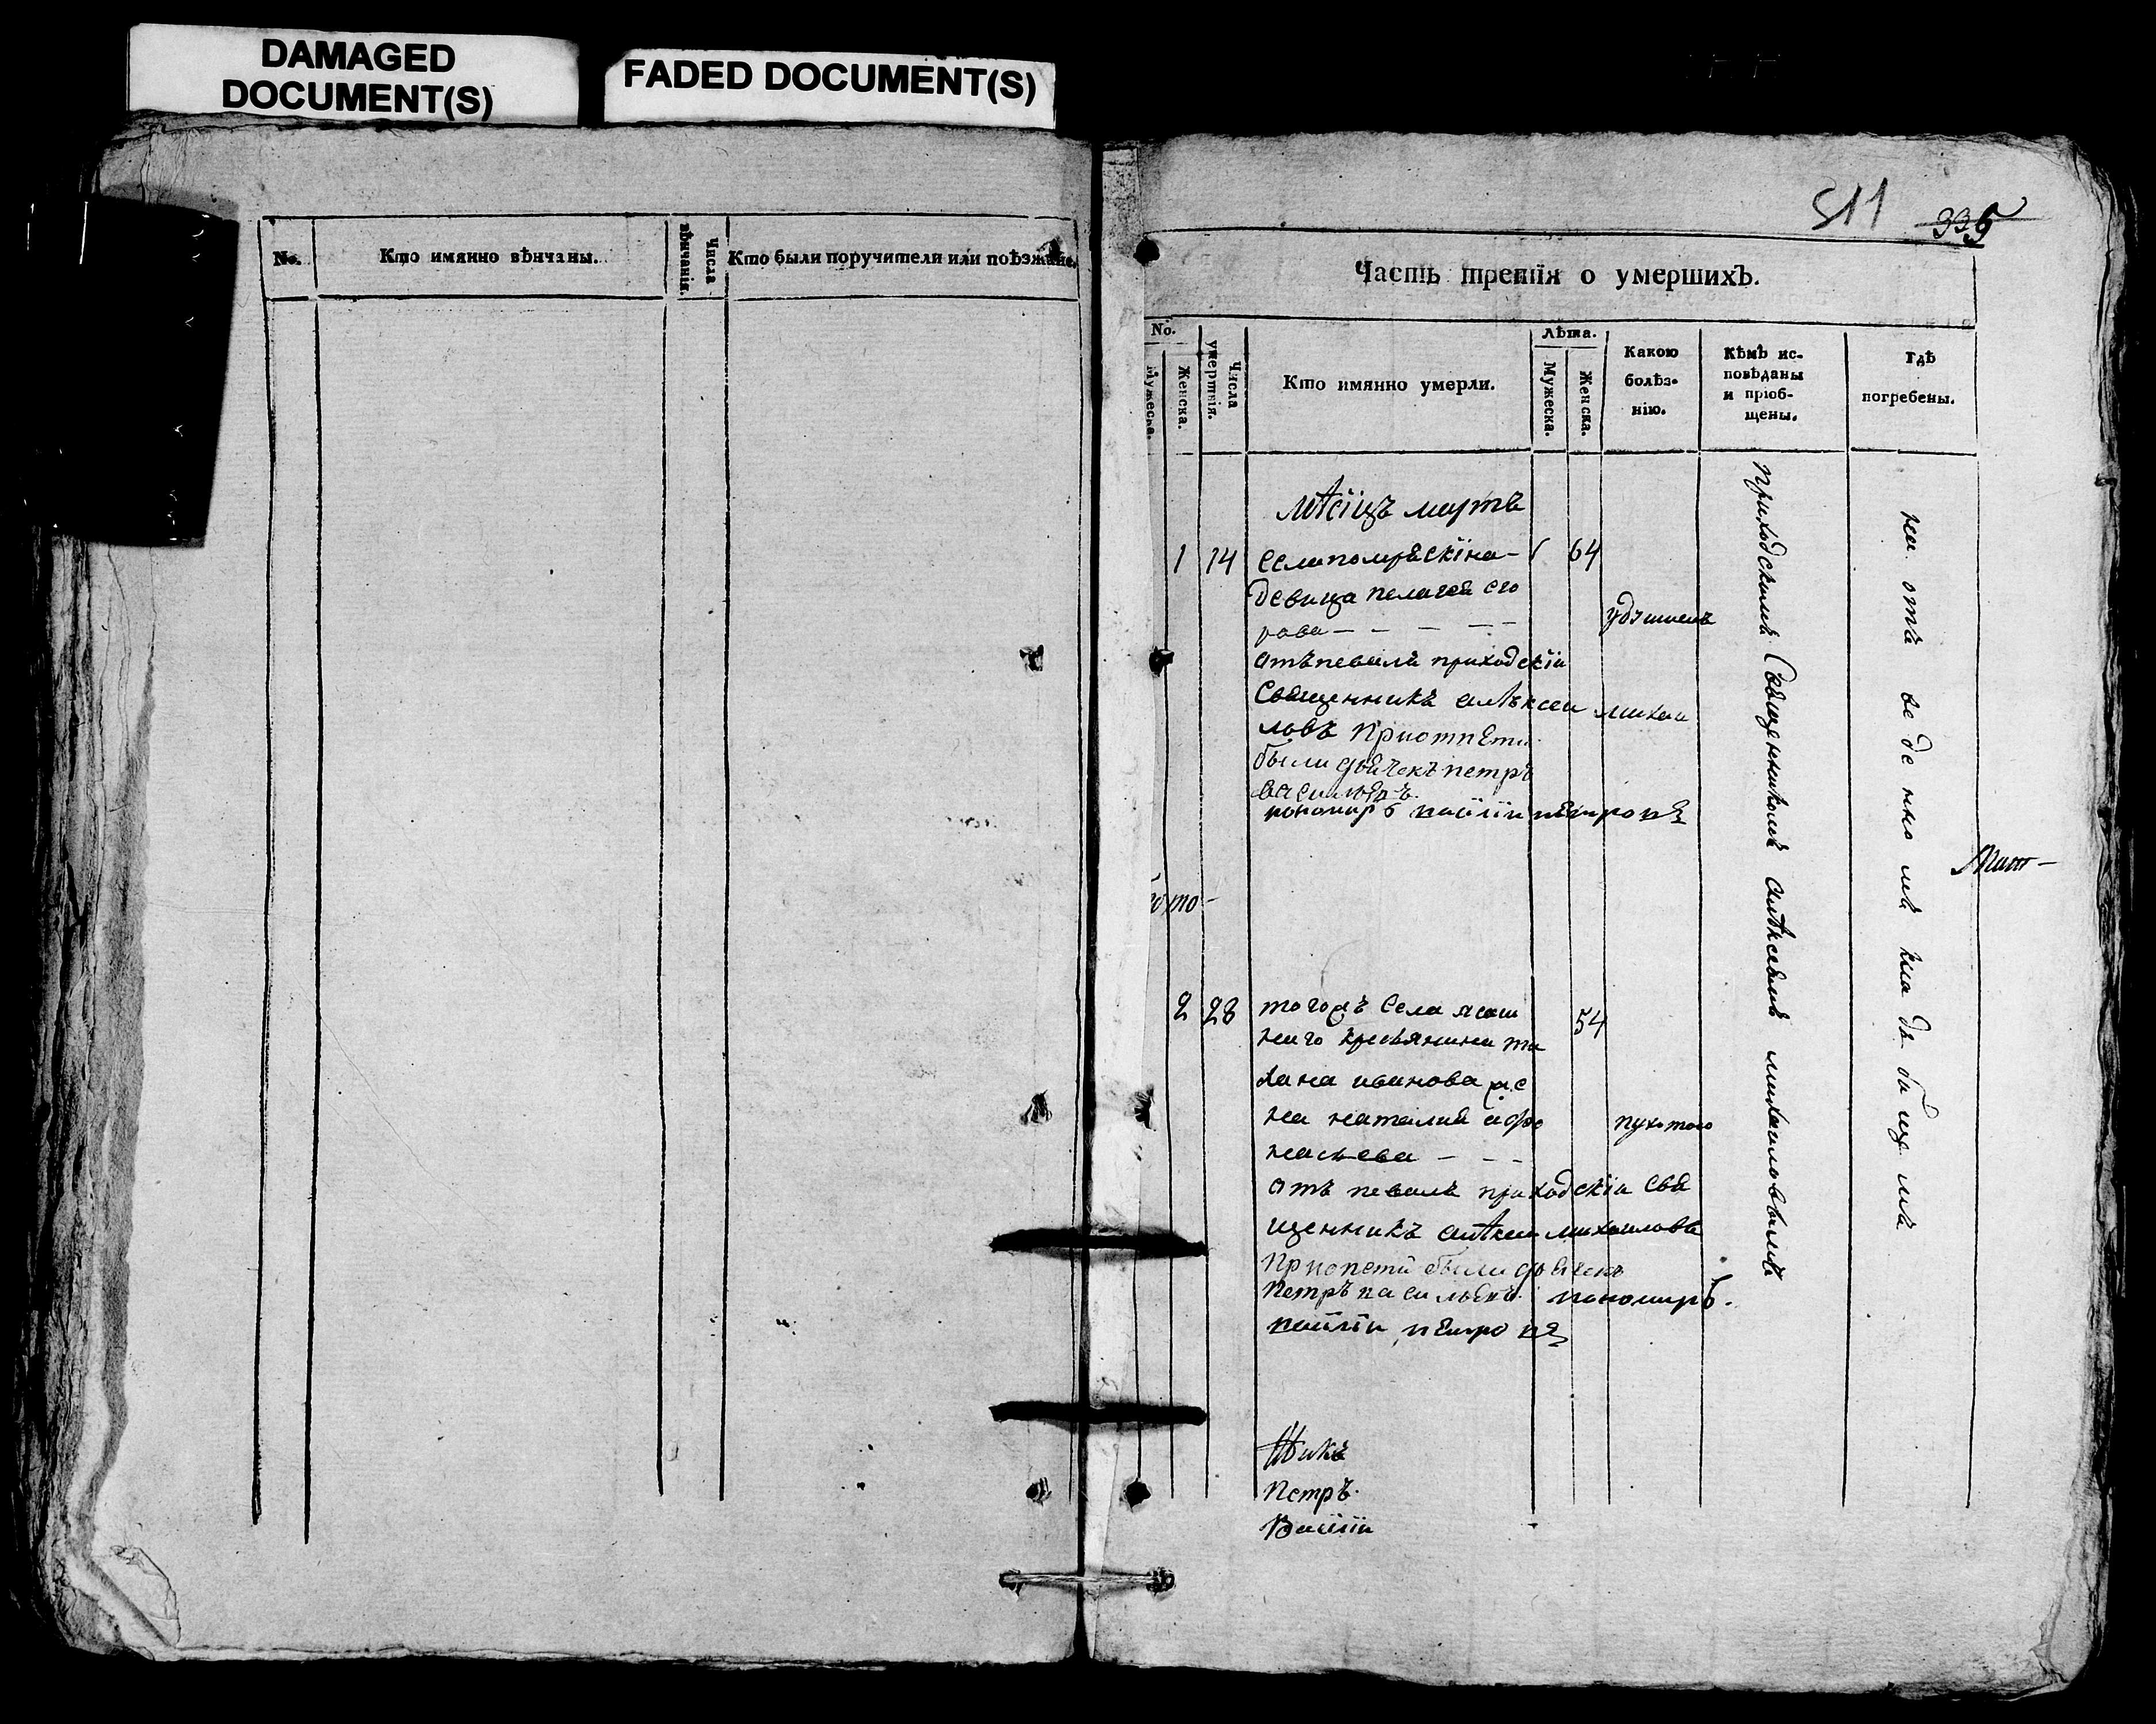 DAMAGED
DOCUMENT(S)
FADED DOCUMENT(S)
No.
Кто имянно вѣнчаны.
Числа
вѣнчанія.
Кто были поручители или поѣзжане.
511 335
Часть третія о умершихъ.
No.
Мужеска.
Женска.
Числа
умертвія.
Кто имянно умерли.
Лѣта.
Мужеска.
Женска.
Какою
болѣз-
нію.
Кѣмъ ис-
повѣданы
и пріоб-
щены.
Гдѣ
погребены.
мѣсіцъ мартъ
1 14 села 64
девица пелагея его
рова
отъпевалъ приходскіи
Священникъ алѣксеи михаи
ловъ Приотпети
были дьячекъ петръ
васильевъ
пономарь
приходскимъ Священникомъ алѣксеемъ михаиловымъ
на отъ ве де нно мъ кла дъ би ще мъ
2 28 тогожъ села ясаш 54
наго кресьянина
ивинова же
на наталия афо
насьева
отъ певалъ приходскіи Свя
щенникъ алѣксеи михаиловъ
были дьячекъ
Петръ васильевъ пономарь
Петръ